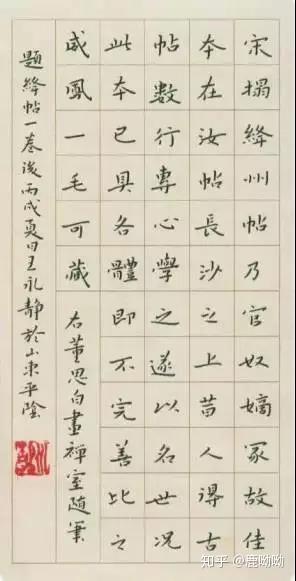 宋搨絳州帖乃官奴嫡冢故佳
本在汝帖長沙之上昔人得古
帖數行專心學之遂以名世況
此本已具各體即不完善比之
威鳳一毛可藏 右董思白畫禪室隨筆
題絳帖一卷後丙戌夏日王永靜於山東平陰
知乎 @鹿呦呦